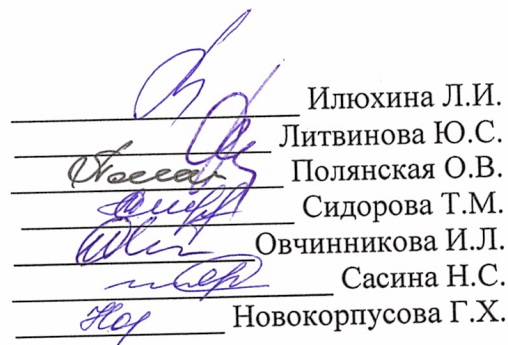 Илюхина Л.И.
Литвинова Ю.С.
Полянская О.В.
Сидорова Т.М.
Овчинникова И.Л.
Сасина Н.С.
Новокорпусова Г.Х.